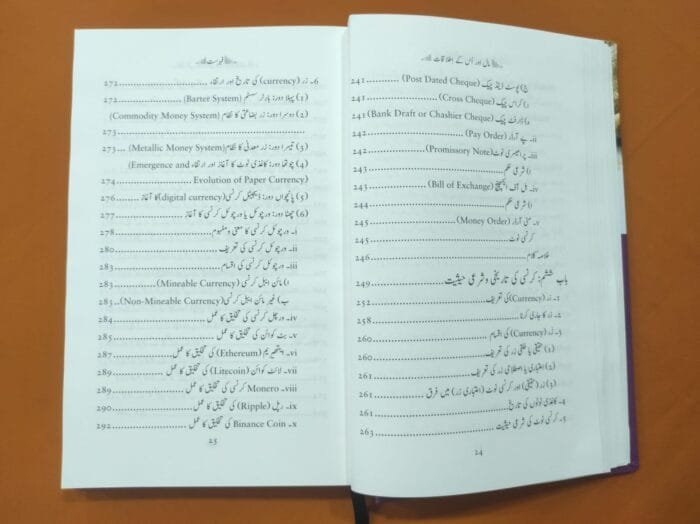 مال اور اُس کے اطلاقات
ج) پوسٹ ڈیٹڈ چیک (Post Dated Cheque) ............ 241
کراس چیک (Cross Cheque) ............ 241
ڈرافٹ چیک (Bank Draft or Chashier Cheque) 241
ii۔ پے آرڈر (Pay Order) ............ 242
iii۔ پرامیسری نوٹ (Promissory Note) ............ 242
i) شرعی حکم ............ 243
iv۔ بل آف ایکسچینج (Bill of Exchange) ............ 243
i) شرعی حکم ............ 244
v۔ منی آرڈر (Money Order) ............ 245
کرنسی نوٹ ............ 245
خلاصہ کلام ............ 246
باب ششم: کرنسی کی تاریخی و شرعی حیثیت ............ 249
1۔ زر (Currency) کی تعریف ............ 252
2۔ زر کا جاری کرنا ............ 258
3۔ زر (Currency) کی اقسام ............ 260
(1) حقیقی یا خلقی زر کی تعریف ............ 260
(2) اعتباری یا اصطلاحی زر کی تعریف ............ 261
(3) زر (حقیقی) اور کرنسی نوٹ (اعتباری زر) میں فرق ............ 261
4۔ کاغذی نوٹوں کی تاریخ ............ 261
5۔ کرنسی نوٹ کی شرعی حیثیت ............ 263
24
فہرست
6۔ زر (currency) کی تاریخ اور ارتقاء ............ 272
(1) پہلا دور: بارٹر سسٹم (Barter System) ............ 272
(2) دوسرا دور: زر بضاعتی کا نظام (Commodity Money System)
............ 273
(3) تیسرا دور: زر معدنی کا نظام (Metallic Money System) ... 273
(4) چوتھا دور: کاغذی نوٹ کا آغاز اور ارتقاء (Emergence and
Evolution of Paper Currency ............ 274
(5) پانچواں دور: ڈیجیٹل کرنسی (digital currency) کا آغاز ............ 276
(6) چھٹا دور: ورچوئل یا ورچوئل کرنسی کا آغاز ............ 277
i۔ ورچوئل کرنسی کا معنی و مفہوم ............ 278
ii۔ ورچوئل کرنسی کی تعریف ............ 280
iii۔ ورچوئل کرنسی کی اقسام ............ 283
ا) مائن ایبل کرنسی (Mineable Currency) ............ 283
ب) غیر مائن ایبل کرنسی (Non-Mineable Currency) ... 283
iv۔ ورچوئل کرنسی کی تخلیق کا عمل ............ 284
v۔ بٹ کوائن کی تخلیق کا عمل ............ 285
vi۔ ایتھیریم (Ethereum) کی تخلیق کا عمل ............ 287
vii۔ لائٹ کوائن (Litecoin) کی تخلیق کا عمل ............ 289
viii۔ Monero کرنسی کی تخلیق کا عمل ............ 289
ix۔ رپل (Ripple) کی تخلیق کا عمل ............ 290
x۔ Binance Coin کی تخلیق کا عمل ............ 292
25